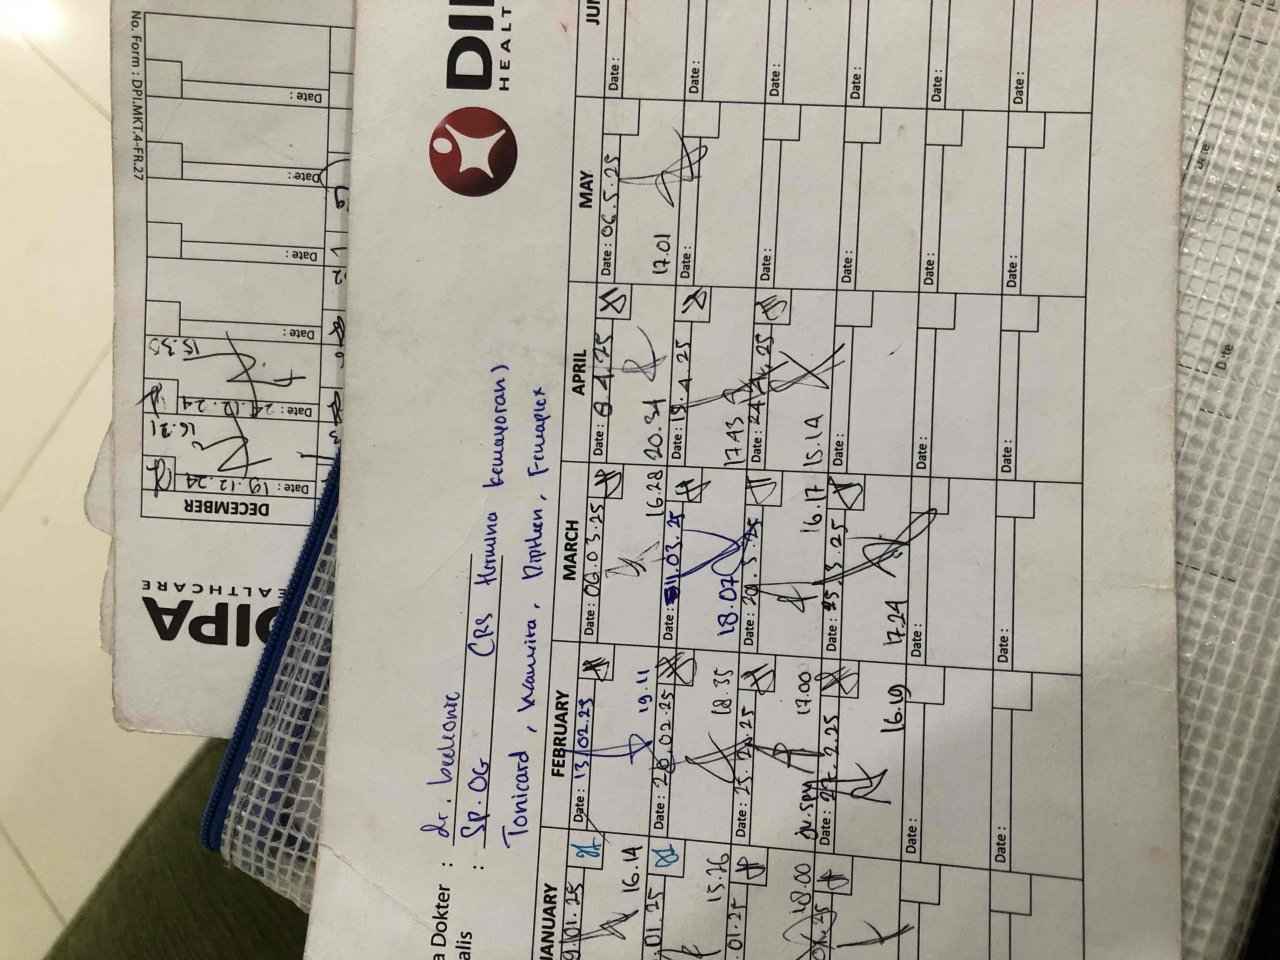 DI
HEALT
a Dokter :
alis :
Sp.OG
(RS Hermina kemayoran)
Tonicard,
JANUARY
FEBRUARY
MARCH
APRIL
MAY
JU
01.25
16.14
Date : 13.02.25
19.11
Date : 06.03.25
16.28
Date : 8.4.25
20.34
Date : 06.5.25
17.01
Date :
01.25
15.26
Date : 20.02.25
18.35
Date : 11.03.25
18.07
Date : 19.4.25
17.43
Date :
Date :
01.25
18.00
Date : 25.2.25
17.00
Date : 20.3.25
16.17
Date : 24.4.25
15.14
Date :
Date :
Date : 27.2.25
16.19
Date : 25.3.25
17.24
Date :
Date :
Date :
Date :
Date :
Date :
Date :
Date :
Date :
Date :
Date :
Date :
Date :
DIPA
EALTHCARE
DECEMBER
Date : 19.12.24
16.21
Date : 24.12.24
15.35
Date :
Date :
Date :
Date :
No. Form : DPI.MKT.4-FR.27
Date
Date